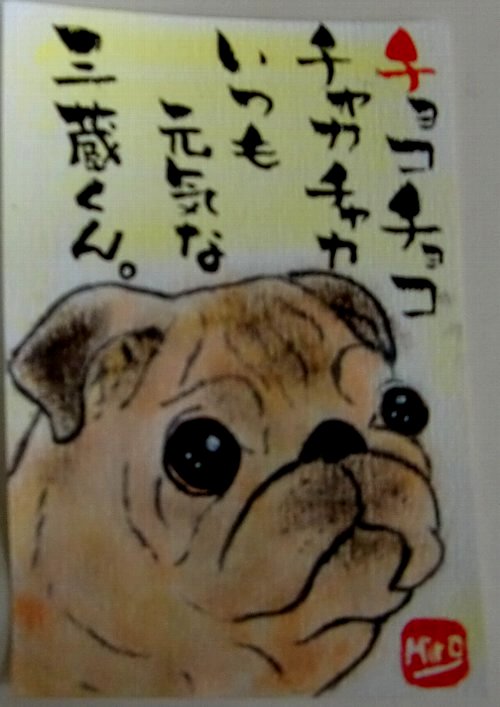 チョコチョコ
チャカチャカ
いつも
元気な
三蔵くん。
Hiro